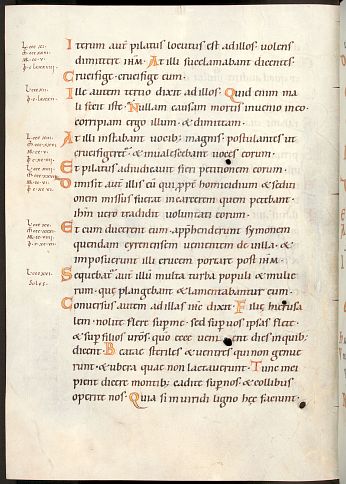 Iterum aut pilatus locutus est ad illos. volens
dimittere ihm. At illi succlamabant dicentes.
Crucifige. crucifige eum.
Ille autem tertio dixit ad illos. Quid enim ma
li fecit iste. Nullam causam mortis inuenio in eo.
corripiam ergo illum. & dimittam.
At illi instabant uocib; magnis. postulantes ut
crucifigeret. & inualescebant uoces eorum.
Et pilatus adiudicauit fieri petitionem eorum.
Dimisit aut illis eu qui ppt homicidium & sediti
onem missus fuerat in carcerem quem petebant.
ihm uero tradidit uoluntati eorum.
Et cum ducerent eum. apphenderunt symonem
quendam cyrenensem uenientem de uilla. &
imposuerunt illi crucem portare post ihm.
Sequebat aut illu multa turba populi & mulie
rum. que plangebant & lamentabantur eum.
Conuersus autem ad illas ihc dixit. Filie hierusa
lem. nolite flere sup me. sed sup uos ipsas flete.
& sup filios uros. quo ecce uenient dies in quib;
dicent. Beatae steriles & uentres qui non genue
runt. & ubera quae non lactauerunt. Tunc inci
pient dicere montib; cadite sup nos. & collibus
operite nos. Quia si in uiridi ligno hec faciunt.